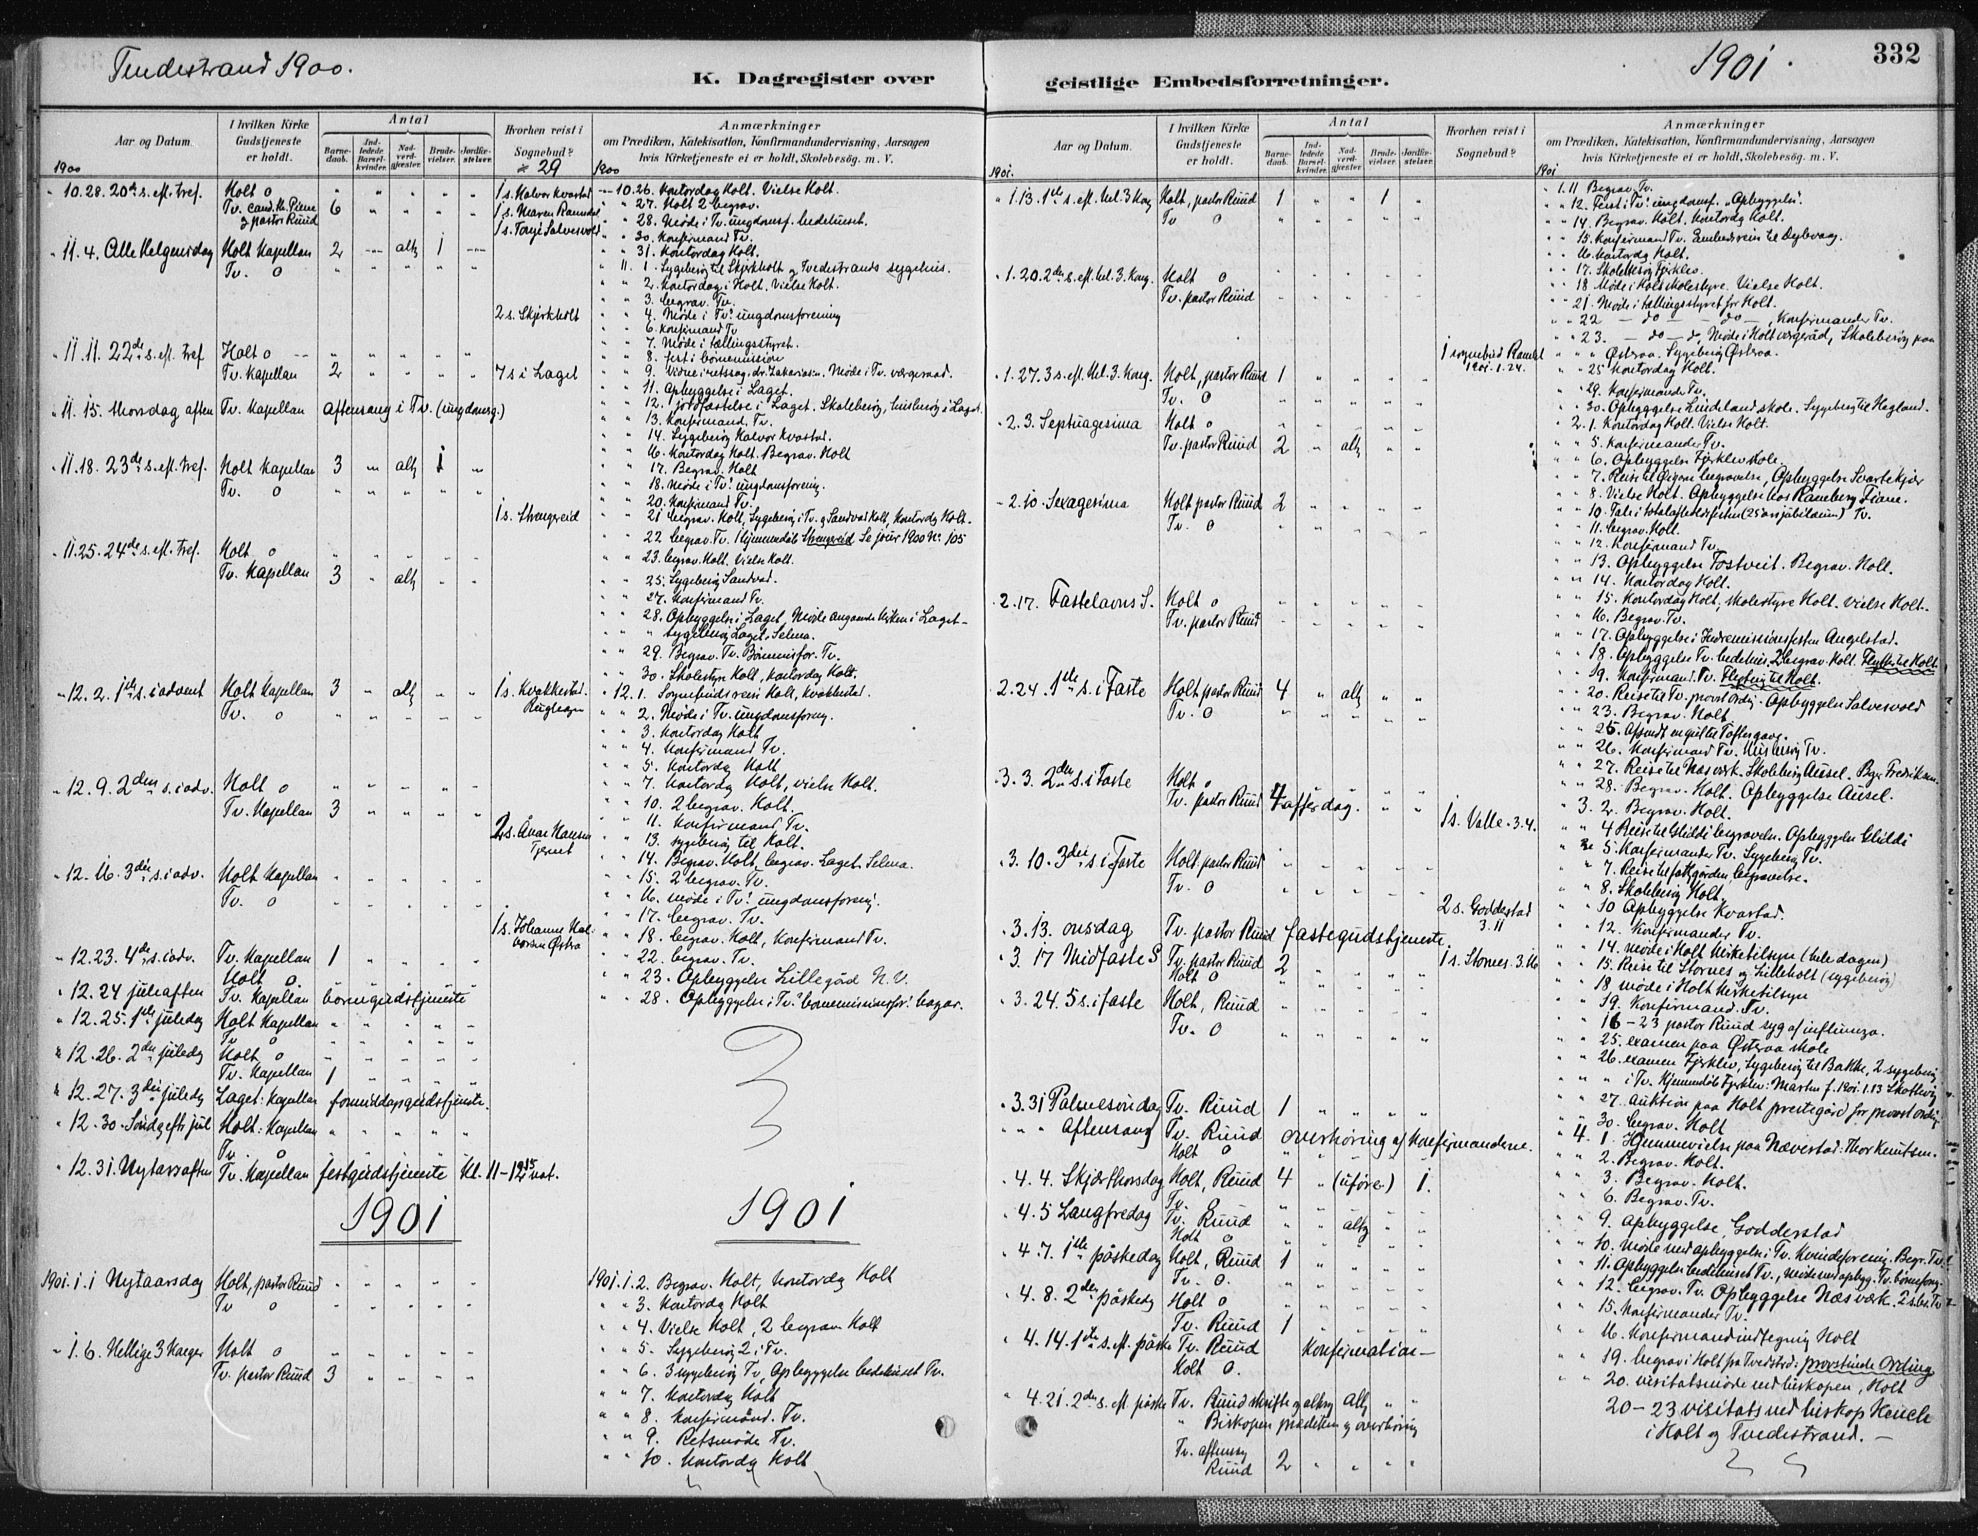 Tvedestrand 1900.
K. Dagregister over
Aar og Datum.
I hvilken Kirke Gudstjeneste er holdt.
Antal
Barnedaab.
Indledede Barselkvinder.
Nadverdgjester.
Brudevielser.
Jordfæstelser.
Hvorhen reist i Sognebud?
29
Anmærkninger
om Prædiken, Katekisation, Konfirmandundervisning, Aarsagen
hvis Kirketjeneste ei er holdt, Skolebesøg. m. V.
1900
1900
10.28. 20de s. eft. tref. Holt o
Tv. cand. th.
og pastor Ruud 6
11.4. Alle Helgensdag Holt Kapellan 2 altg 1
Tv. o
11.11. 22de s. eft. tref. Holt o
Tv. Kapellan 2
11.15. Torsdag aften Tv. Kapellan Aftensang i Tv. (ungdomsg.)
11.18. 23de s. eft. tref. Holt Kapellan 3 altg 1
Tv. o
11.25. 24de s. eft. tref. Holt o
Tv. Kapellan 3 altg
12.2. 1ste s. i advent Holt Kapellan 3 altg
Tv. o
12.9. 2den s. i adv. Holt o
Tv. Kapellan 3
12.16. 3die s. i adv. Holt Kapellan
Tv. o
12.23. 4de s. i adv. Tv. Kapellan 1
Holt o.
12.24 juleaften Tv. Kapellan børnegudstjeneste
12.25. 1ste juledag Holt Kapellan
Tv o
12.26. 2den juledag Holt o
Tv. Kapellan 1
12.27. 3die juledag Laget: Kapellan formiddagsgudstjeneste.
12.30. Søndag eftr jul Holt: Kapellan
Tv. o
12.31. Nytaarsaften Tv. Kapellan festgudstjeneste Kl. 11-12 15 nat.
1901
1901.1.1 Nytaarsdag Holt, pastor Ruud
Tv o
1.6. Hellige 3 Konger Holt o
Tv. pastor Ruud 3
1 s. Halvor Kvastad
1 s. Maren
1 s. Torje Salvesvold
2 s. Skjerkholt
7 s i Laget
1 s. Strengereid
1 s. Kvakkestad.
2 s. Anar Hansen
Tjernet
1 s. Johanne Halvorsen Østra
10.26. Kontordag Holt. Vielse Holt.
27. Holt 2 begrav.
28. Møde i Tv. ungdomsf. bedehuset.
30. Konfirmand Tv.
31. Kontordag Holt.
11. 1. Sygebesøg til Skjerkholt og Tvedestrands sygehus.
2. Kontordag i Holt. Vielse Holt.
3. begrav. Tv.
4. Møde i Tv.s ungdomsforening
6. Konfirmand Tv
7. Møde i tællingsstyret.
8. fest i børnemission
9. Vidne i retssag. Møde i Tv. værgeraad.
11. Opbyggelse i Laget.
12. 1 jordfæstelse i Laget. Skolebesøg, husbesøg i Laget.
13. Konfirmand. Tv.
14. Sygebesøg Halvor Kvastad.
16. Kontordag Holt. Begrav. Holt
17. Begrav. Holt
18. Møde i Tv.s ungdomsforening.
20. Konfirmand Tv.
21 begrav. Holt, Sygebesøg i Tv. og Sandvad Holt, Kontordag Holt.
22. begrav. Tv. Hjemmedøb Strengereid Se jour 1900 Nr. 105
23. begrav. Holt. Vielse Holt.
25. Sygebesøg Sandvad.
27. Konfirmand Tv.
28. Opbyggelse i Laget, Møde angaaende Kirken i Laget -
sygebesøg Laget, Selma.
29. Begrav. Tv. Børnemisfor. Tv.
30. Skolestyre Holt, Kontordag Holt.
12. 1. Sognebudsreise Holt, Kvakkestad.
2. Møde i Tv. ungdomsforening.
3. Kontordag Holt
4. Konfirmand Tv.
5. Kontordag Holt
7. Kontordag Holt, vielse Holt.
10. 2 begrav. Holt.
11. Konfirmand Tv.
13. sygebesøg til Holt.
14. Begrav. Holt, begrav. Laget. Selma.
15. 2 begrav. Tv.
16. møde i Tv.s ungdomsforening.
17. begrav. Tv.
18. begrav. Holt, Konfirmand Tv.
22. begrav. Tv.
23. Opbyggelse Lillegård N.V.
28. Opbyggelse i Tv.s børnemissionsfor. bazar.
1901
1901.1.2. Begrav. Holt, Kontordag Holt
3. Kontordag Holt
4. Vielse Holt, 2 begrav Holt
5. Sygebesøg 2 i Tv.
6. 3 sygebesøg Tv, Opbyggelse bedehuset Tv.
7. Kontordag Holt
8. Konfirmand. Tv.
9. Retsmøde Tv.
10. Kontordag Holt
geistlige Embedsforretninger.
1901.
332
Aar og Datum.
I hvilken Kirke Gudstjeneste er holdt.
Antal
Barnedaab.
Indledede Barselkvinder.
Nadverdgjester.
Brudevielser.
Jordfæstelser.
Hvorhen reist i Sognebud?
Anmærkninger
om Prædiken, Katekisation, Konfirmandundervisning, Aarsagen
hvis Kirketjeneste ei er holdt, Skolebesøg. m. V.
1901.
1901
1.13. 1ste s. eft. Hel. 3 Kong Holt, pastor Ruud 1 1
Tv o
1.20. 2den s. eft. Hel. 3. Kong. Holt o
Tv. pastor Ruud
1.27. 3 s. eft. Hel. 3. Kong. Holt, pastor Ruud 1
Tv. o
2.3. Septuagesima Holt o
Tv. pastor Ruud 2 altg
2.10. Sexagesima Holt pastor Ruud 2
Tv. o
2.17. Fastelavns S. Holt o
Tv. pastor Ruud
2.24. 1ste s. i Faste Holt pastor Ruud 4 altg
Tv. o
3.3. 2den s. i Faste Holt o
Tv. pastor Ruud 4 offerdag.
3.10. 3die s. i Faste Holt pastor Ruud
Tv. o
3.13. onsdag Tv. pastor Ruud fastegudstjeneste.
3.17 Midfaste S Tv. pastor Ruud 2
Holt o
3.24. 5 s. i faste Holt, Ruud
Tv. o
3.31 Palmesøndag Tv. Ruud 1
Aftensang Tv. Ruud overhøring af Konfirmanderne.
Holt o
4.4. Skjærthorsdag Holt, Ruud 4 (uføre) 1.
Tv. o
4.5 Langfredag Tv. Ruud altg
Holt o
4.7. 1ste påskedag Holt, Ruud 1
Tv. o.
4.8. 2den påskedag Holt o
Tv. Ruud 1
4.14. 1ste s. eft. påske Tv. Ruud Konfirmation -
Holt o.
4.21. 2den s. eft. påske Tv. Ruud skrifte og altrg altg
Biskopen prædiken og overhøring
Tv. aftensang
Ruud 2
1 sognebud
1901.1.24.
1 s. Valle. 3.4.
2 s. Goddestad
3.11
1 s. Stornes. 3.16
1.11 Begrav. Tv.
12. Fest i Tv.s ungdomsf. "Opbyggelse".
14. Begrav. Holt, Kontordag Holt.
15. Konfirmand Tv. Embedsreise til Dybvaag.
16. Kontordag Holt.
17. Skolebesøg Fjerklev
18 Møde i Holt skolestyre. Vielse Holt.
21. Møde i tællingsstyret for Holt.
22 - do - - do -, Konfirmander Tv.
23. - do - do, Møde i Holt vergeråd, Skolebesøg paa
Østeraa. Sygebesøg Østeraa.
25 Kontordag Holt.
29. Konfirmande Tv.
30. Opbyggelse Lindeland skole. Sygebesøg til Hegland.
2.1. Kontordag Holt. Vielse Holt.
5. Konfirmander Tv.
6. Opbyggelse Fjerklev skole.
7. Reise til begravelse, Opbyggelse Svartekjær
8. Vielse Holt. Opbyggelse hos Ramberg Fiane.
10. Tale i totalafholdsfesten (25 års jubilæum) Tv.
11. begrav. Holt.
12. Konfirmand Tv.
13. Opbyggelse Fostveit. Begrav. Holt.
14. Kontordag Holt.
15. Kontordag Holt, skolestyre Holt. Vielse Holt.
16. Begrav. Tv.
17. Opbyggelse i Indremissionsfesten Angelstad.
18. Opbyggelse Tv. bedehus. 2 begrav. Holt.
19. Konfirmand. Tv. Flytning til Holt.
20. Reise til Tv. provst Ording. Opbyggelse Salvesvold
23. Begrav. Holt.
26. Konfirmand Tv. Husbesøg Tv.
27. Reise til Næs værk. Skolebesøg Ausel.
28. Begrav. Holt. Opbyggelse Ausel.
3. 2. Begrav. Holt.
4 Reise til Glidi begravelse. Opbyggelse Glidi
5. Konfirmander Tv. Sygebesøg Tv.
7. Reise til fattiggården, begravelse.
8. Skolebesøg Holt.
10 Opbyggelse Kvastad.
12. Konfirmander Tv.
14. møde i Holt Kirketilsyn (hele dagen)
15. Reise til Stornes og Lilleholt (sygebesøg)
18 møde i Holt Kirketilsyn
19. Konfirmand. Tv.
16-23 pastor Ruud syg af influenza.
25. examen paa Østeraa skole
26. examen Fjerklev, Sygebesøg til Bakke, 2 sygebesøg
i Tv. Hjemmedøb Fjerklev: Martin f. 1901.1.13
27. Auktion paa Holt prestegård for provst Ording
30. begrav. Holt
4. 1. Hjemmevielse paa Nævestad: Thor Knutsen.
2. Begrav. Holt.
3. Begrav. Holt.
6. Begrav. Tv.
9. Opbyggelse, Godderstad
10. møde med opbyggelse i Tv. Kvindeforening. Begr. Tv.
11. Opbyggelse bedehuset Tv., Møde med opbyg. Tv. børneforng.
12. begrav. Tv. Opbyggelse Næs værk.
15. Konfirmander Tv.
16. Konfirmandindtegning Holt
19. begrav i Holt fra Tvedestrd: provstinde Ording
20. visitatsmøde med biskopen, Holt
20-23 visitats ved biskop Heuch
i Holt og Tvedestrand. -